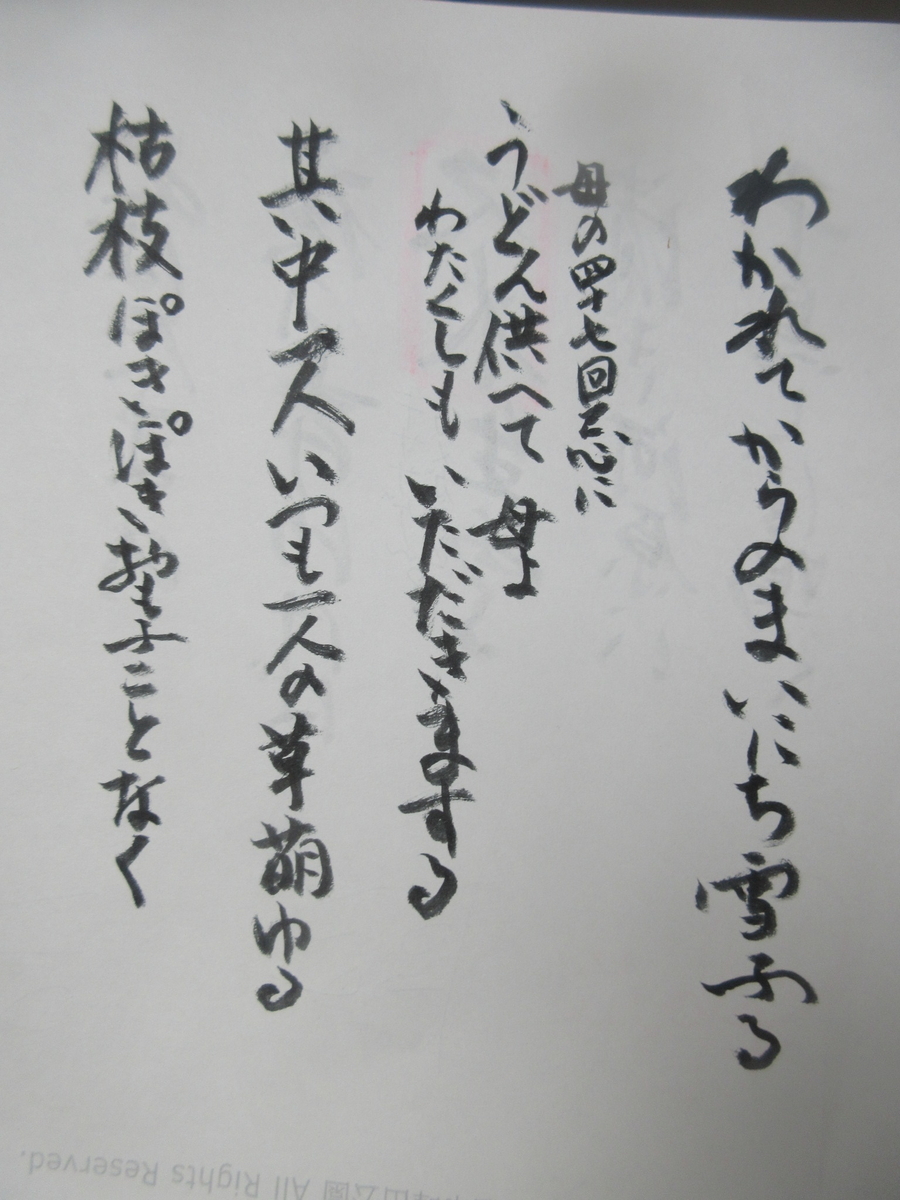 わかれてからのまいにち雪ふる
母の四十七回忌に
うどん供へて 母よ
わたくしも いただきまする
其中一人いつも一人の草萌ゆる
枯枝ぽきぽきおもふことなく
公園 All Rights Reserved.